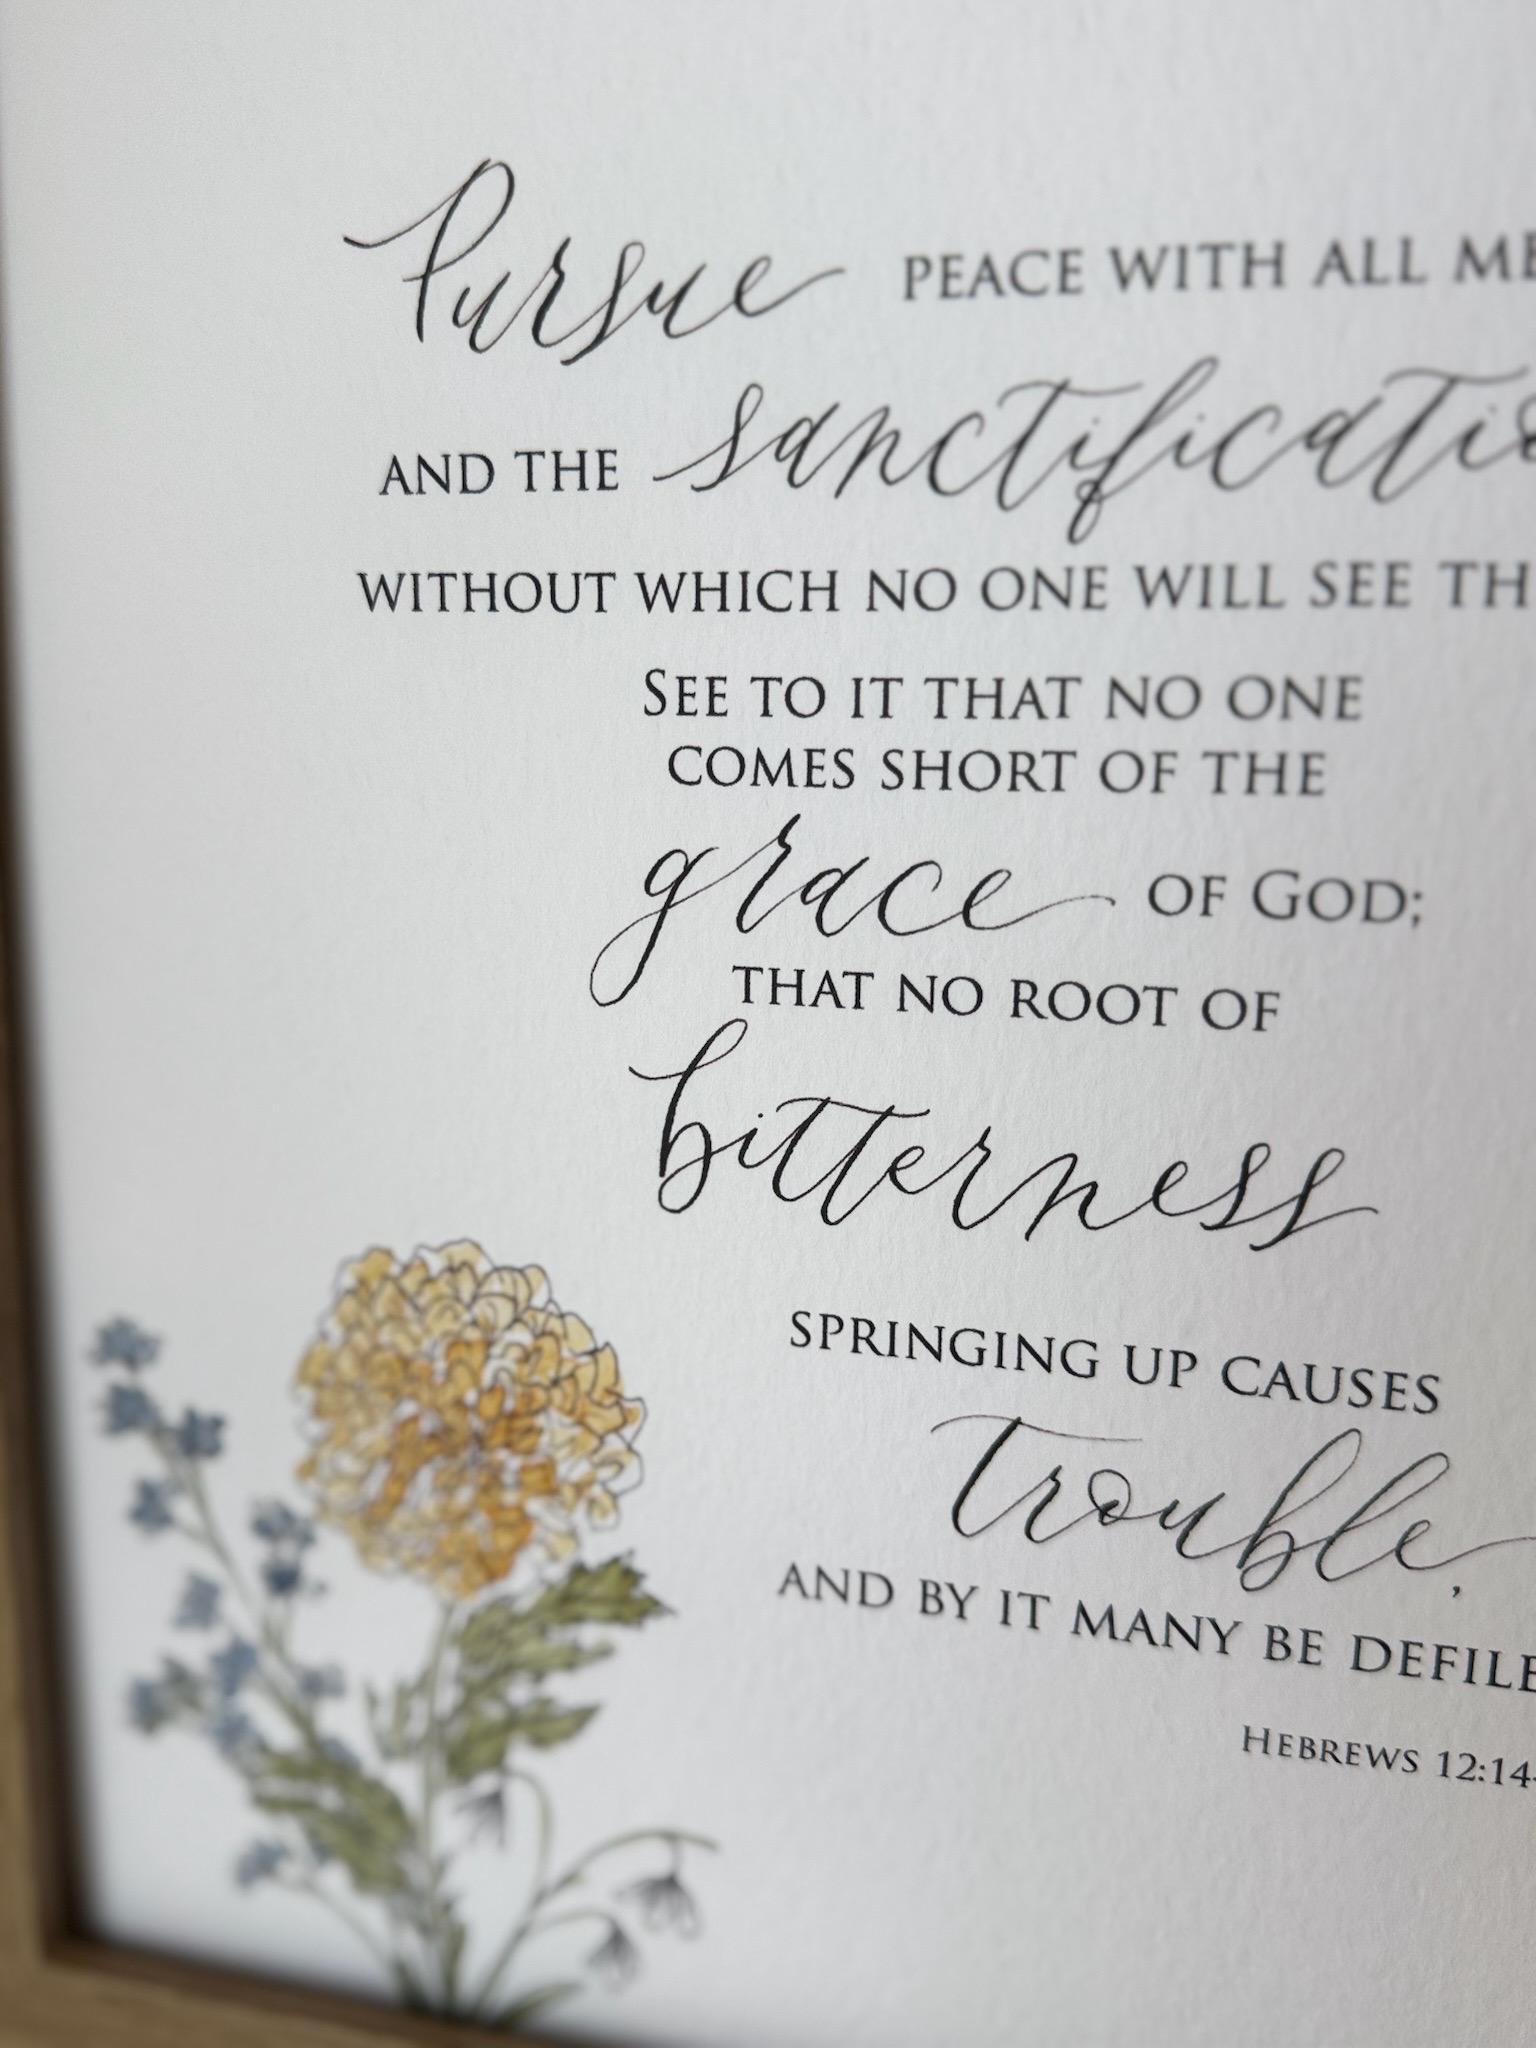 Pursue PEACE WITH ALL ME
AND THE sanctificatio
WITHOUT WHICH NO ONE WILL SEE TH
SEE TO IT THAT NO ONE
COMES SHORT OF THE
grace OF GOD;
THAT NO ROOT OF
bitterness
SPRINGING UP CAUSES
trouble,
AND BY IT MANY BE DEFILE
HEBREWS 12:14-